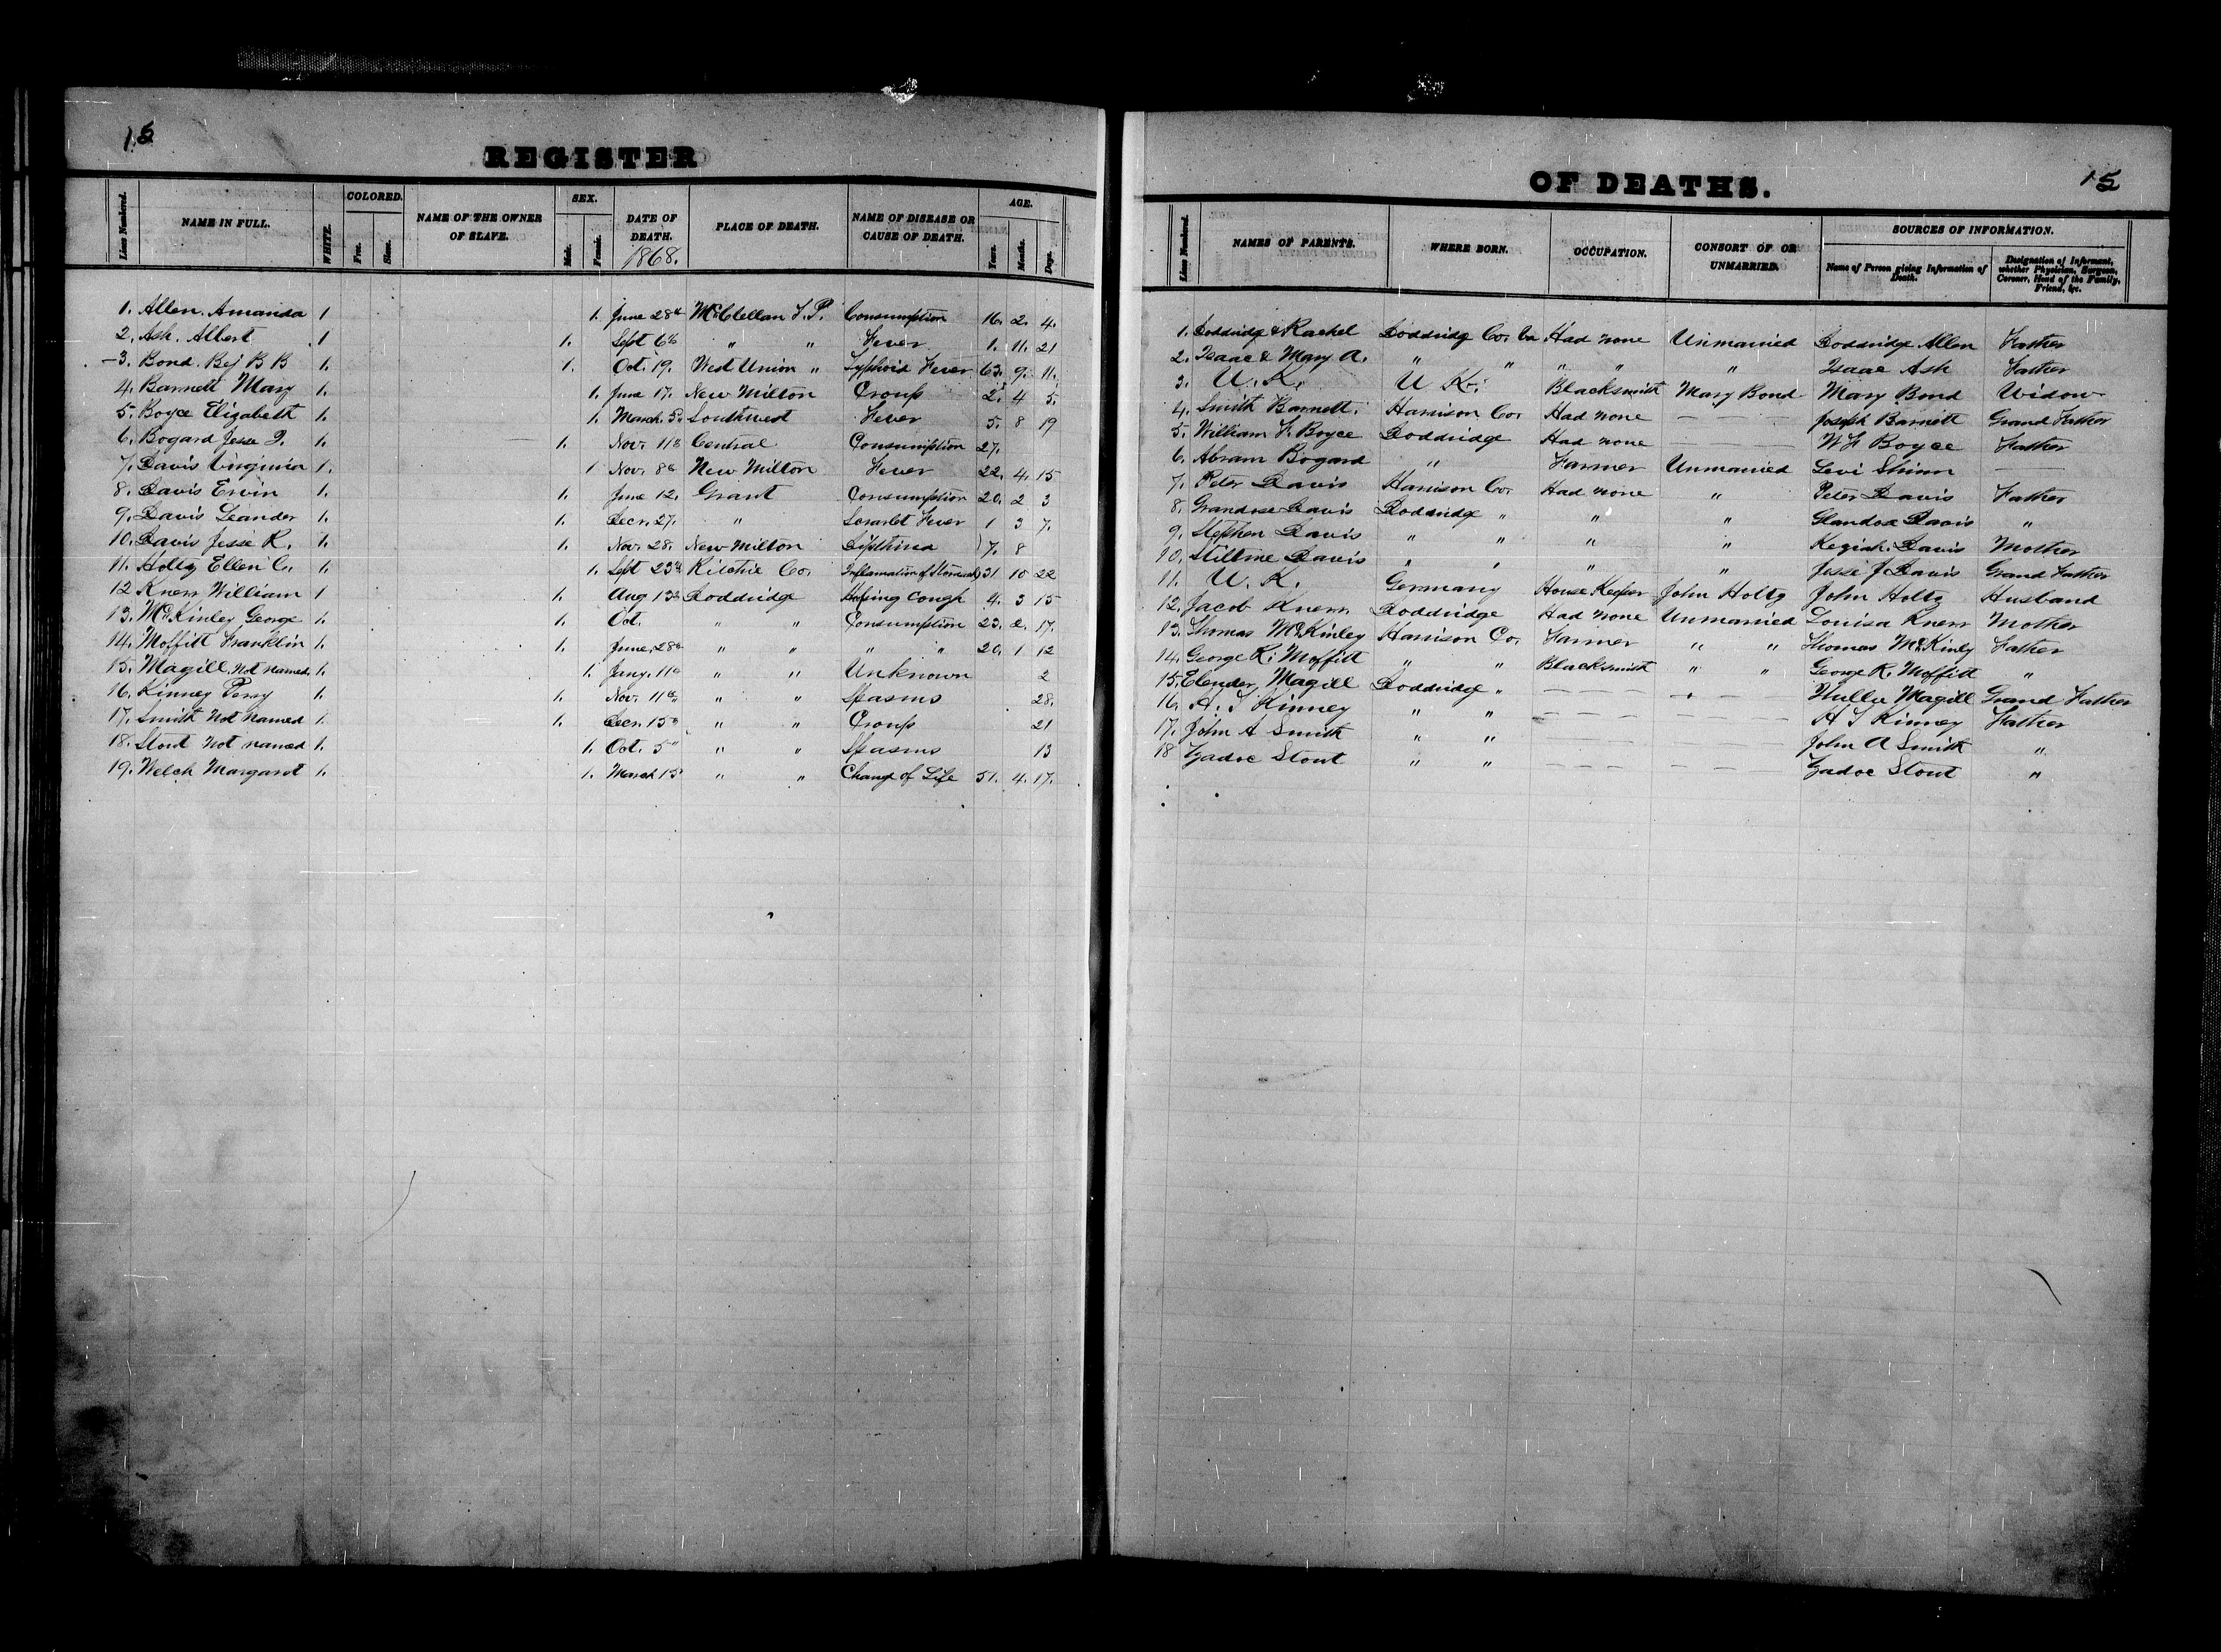 15
REGISTER
Lines Numbered. NAME IN FULL. WHITE. COLORED. Free. Slave. NAME OF THE OWNER OF SLAVE. SEX. Male. Female. DATE OF DEATH. 1868. PLACE OF DEATH. NAME OF DISEASE OR CAUSE OF DEATH. AGE. Years. Months. Days.
1. Allen, Amanda 1 1. June 28th McClellan T. P. Consumption 16. 2. 4.
2. Ash, Albert 1 1. Sept 6th " " Fever 1. 11. 21
3. Bond, Bej B B 1. 1. Oct. 19. West Union " Typhoid Fever 63. 9. 11.
4. Barnett Mary 1. 1. June 17. New Milton Croup 2. 4 5.
5. Boyce Elizabeth 1. 1. March 5. Southwest Fever 5. 8 19
6. Bogard Jesse 1. 1. Nov. 11th Central Consumption 27.
7. Davis Virginia 1. 1 Nov. 8th New Milton Fever 22. 4. 15
8. Davis Ervin 1. 1. June 12. Grant Consumption 20. 2 3
9. Davis Leander 1. 1. Decr. 27. " Scarlet Fever 1 3 7.
10. Davis Jesse R. 1. 1. Nov. 28. New Milton Dipthria 7. 8
11. Holtz Ellen C. 1. 1. Sept 23rd Ritchie Co. Inflamation of Stomach 31 10 22
12 Knerr William 1 1. Aug 13th Doddridge Hooping Cough 4. 3 15
13. McKinley George 1. 1. Oct. " " Consumption 23. 2. 17.
14. Moffitt Franklin 1. 1. June. 28th " " " " 20. 1 12
15. Magill, Not named, 1. 1. Jany. 11th " " Unknown 2
16. Kinney Perry 1. 1. Nov. 11th " " Spasms 28.
17. Smith Not Named 1. 1. Decr. 15th " " Croup 21
18. Stout Not named 1. 1. Oct. 5th " " Spasms 13
19. Welch Margaret 1. 1. March 15 " " Change of Life 51. 4. 17.
OF DEATHS.
15
Lines Numbered. NAMES OF PARENTS. WHERE BORN. OCCUPATION. CONSORT OF OR UNMARRIED. SOURCES OF INFORMATION. Name of Person giving Information of Death. Designation of Informant, whether Physician, Surgeon, Coroner, Head of the Family, Friend, &c.
1. Doddridge & Rachel Doddridge Co. Va. Had none Unmarried Doddridge Allen Father
2. Isaac & Mary A. " " " " " Isaac Ash Father
3. U. K. U K. Blacksmith Mary Bond Mary Bond Widow
4. Smith Barnett. Harrison Co. Had none — Joseph Barnett Grand Father
5. William F. Boyce Doddridge Had none W F Boyce Father
6. Abram Bogard " Farmer Unmarried Levi Shinn
7. Peter Davis Harrison Co. Had none " Peter Davis Father
8. Grandose Davis Doddridge " " " Glandose Davis "
9. Stephen Davis " " " " Keziah. Davis Mother
10. Stilline Davis " " " " Jesse J Davis Grand Father
11. U. K. Germany House Keeper John Holtz John Holtz Husband
12. Jacob Knerr Doddridge Had none Unmarried Louisa Knerr Mother
13. Thomas McKinley Harrison Co. Farmer " " Thomas McKinly Father
14. George K. Moffitt " " Blacksmith " " George K. Moffitt "
15. Elender Magill Doddridge " — — — — — — Magill Grand Father
16. A. S Kinney " " — — — — — — A S Kinney Father
17. John A Smith " " — — — — — — John A Smith "
18 Zadoc Stout " " — — — — — — Zadoc Stout "